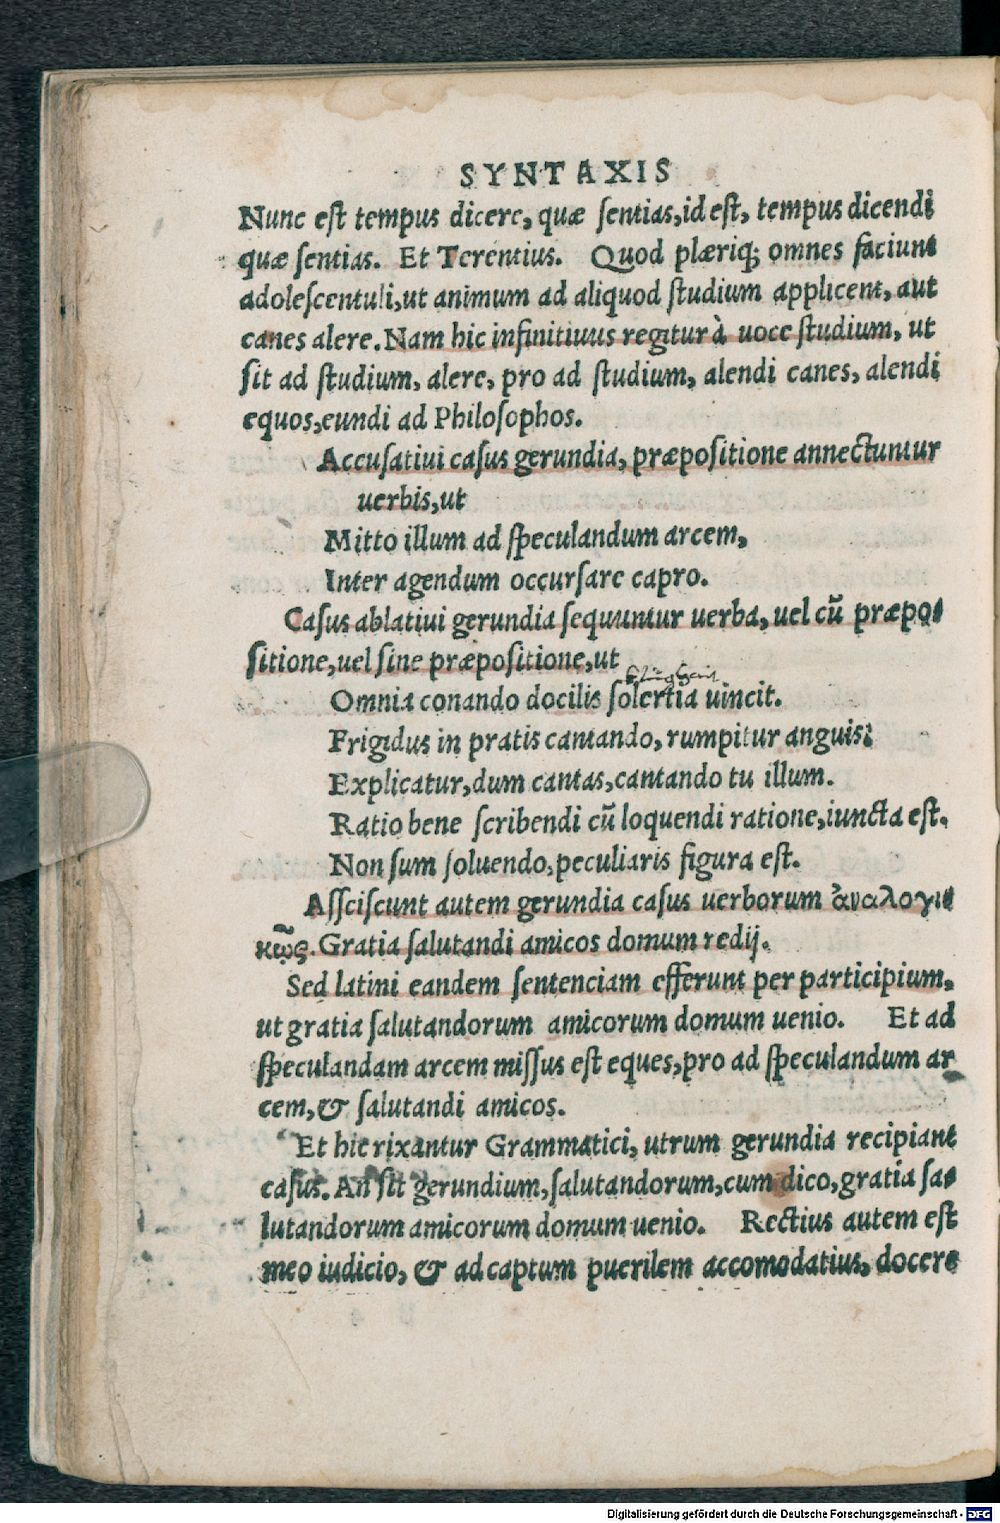 SYNTAXIS
Nunc est tempus dicere, quæ sentias, id est, tempus dicendi
quæ sentias. Et Terentius. Quod plæriq; omnes faciunt
adolescentuli, ut animum ad aliquod studium applicent, aut
canes alere. Nam hic infinitiuus regitur à uoce studium, ut
sit ad studium, alere, pro ad studium, alendi canes, alendi
equos, eundi ad Philosophos.
Accusatiui casus gerundia, præpositione annectuntur
uerbis, ut
Mitto illum ad speculandum arcem,
Inter agendum occursare capro.
Casus ablatiui gerundia sequuntur uerba, uel cũ præpo-
sitione, uel sine præpositione, ut
Omnia conando docilis solertia uincit.
Frigidus in pratis cantando, rumpitur anguis:
Explicatur, dum cantas, cantando tu illum.
Ratio bene scribendi cũ loquendi ratione, iuncta est.
Non sum soluendo, peculiaris figura est.
Assciscunt autem gerundia casus uerborum ἀναλογι-
κῶς. Gratia salutandi amicos domum redij.
Sed latini eandem sentenciam efferunt per participium,
ut gratia salutandorum amicorum domum uenio. Et ad
speculandam arcem missus est eques, pro ad speculandum ar
cem, & salutandi amicos.
Et hic rixantur Grammatici, utrum gerundia recipiant
casus. An sit gerundium, salutandorum, cum dico, gratia sa-
lutandorum amicorum domum uenio. Rectius autem est
meo iudicio, & ad captum puerilem accomodatius, docere
Digitalisierung gefördert durch die Deutsche Forschungsgemeinschaft - DFG